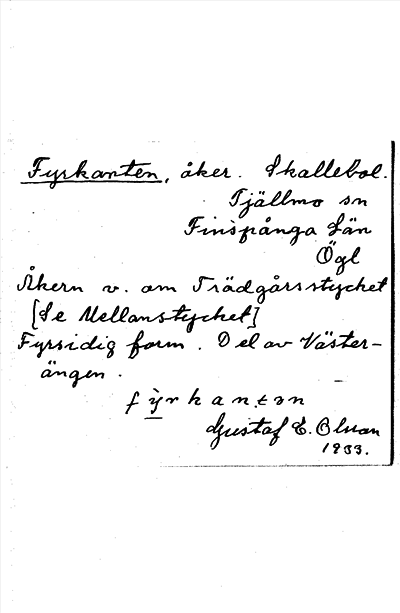 Fyrkanten, åker. Skallebol.
Tjällmo sn
Finspånga Län
Ögl
Åkern v. om Trädgårsstycket
[Se Mellanstycket]
Fyrsidig form. Del av Väster-
ängen.
fỳ̠rkantən
Gustaf E. Oluan
1933.